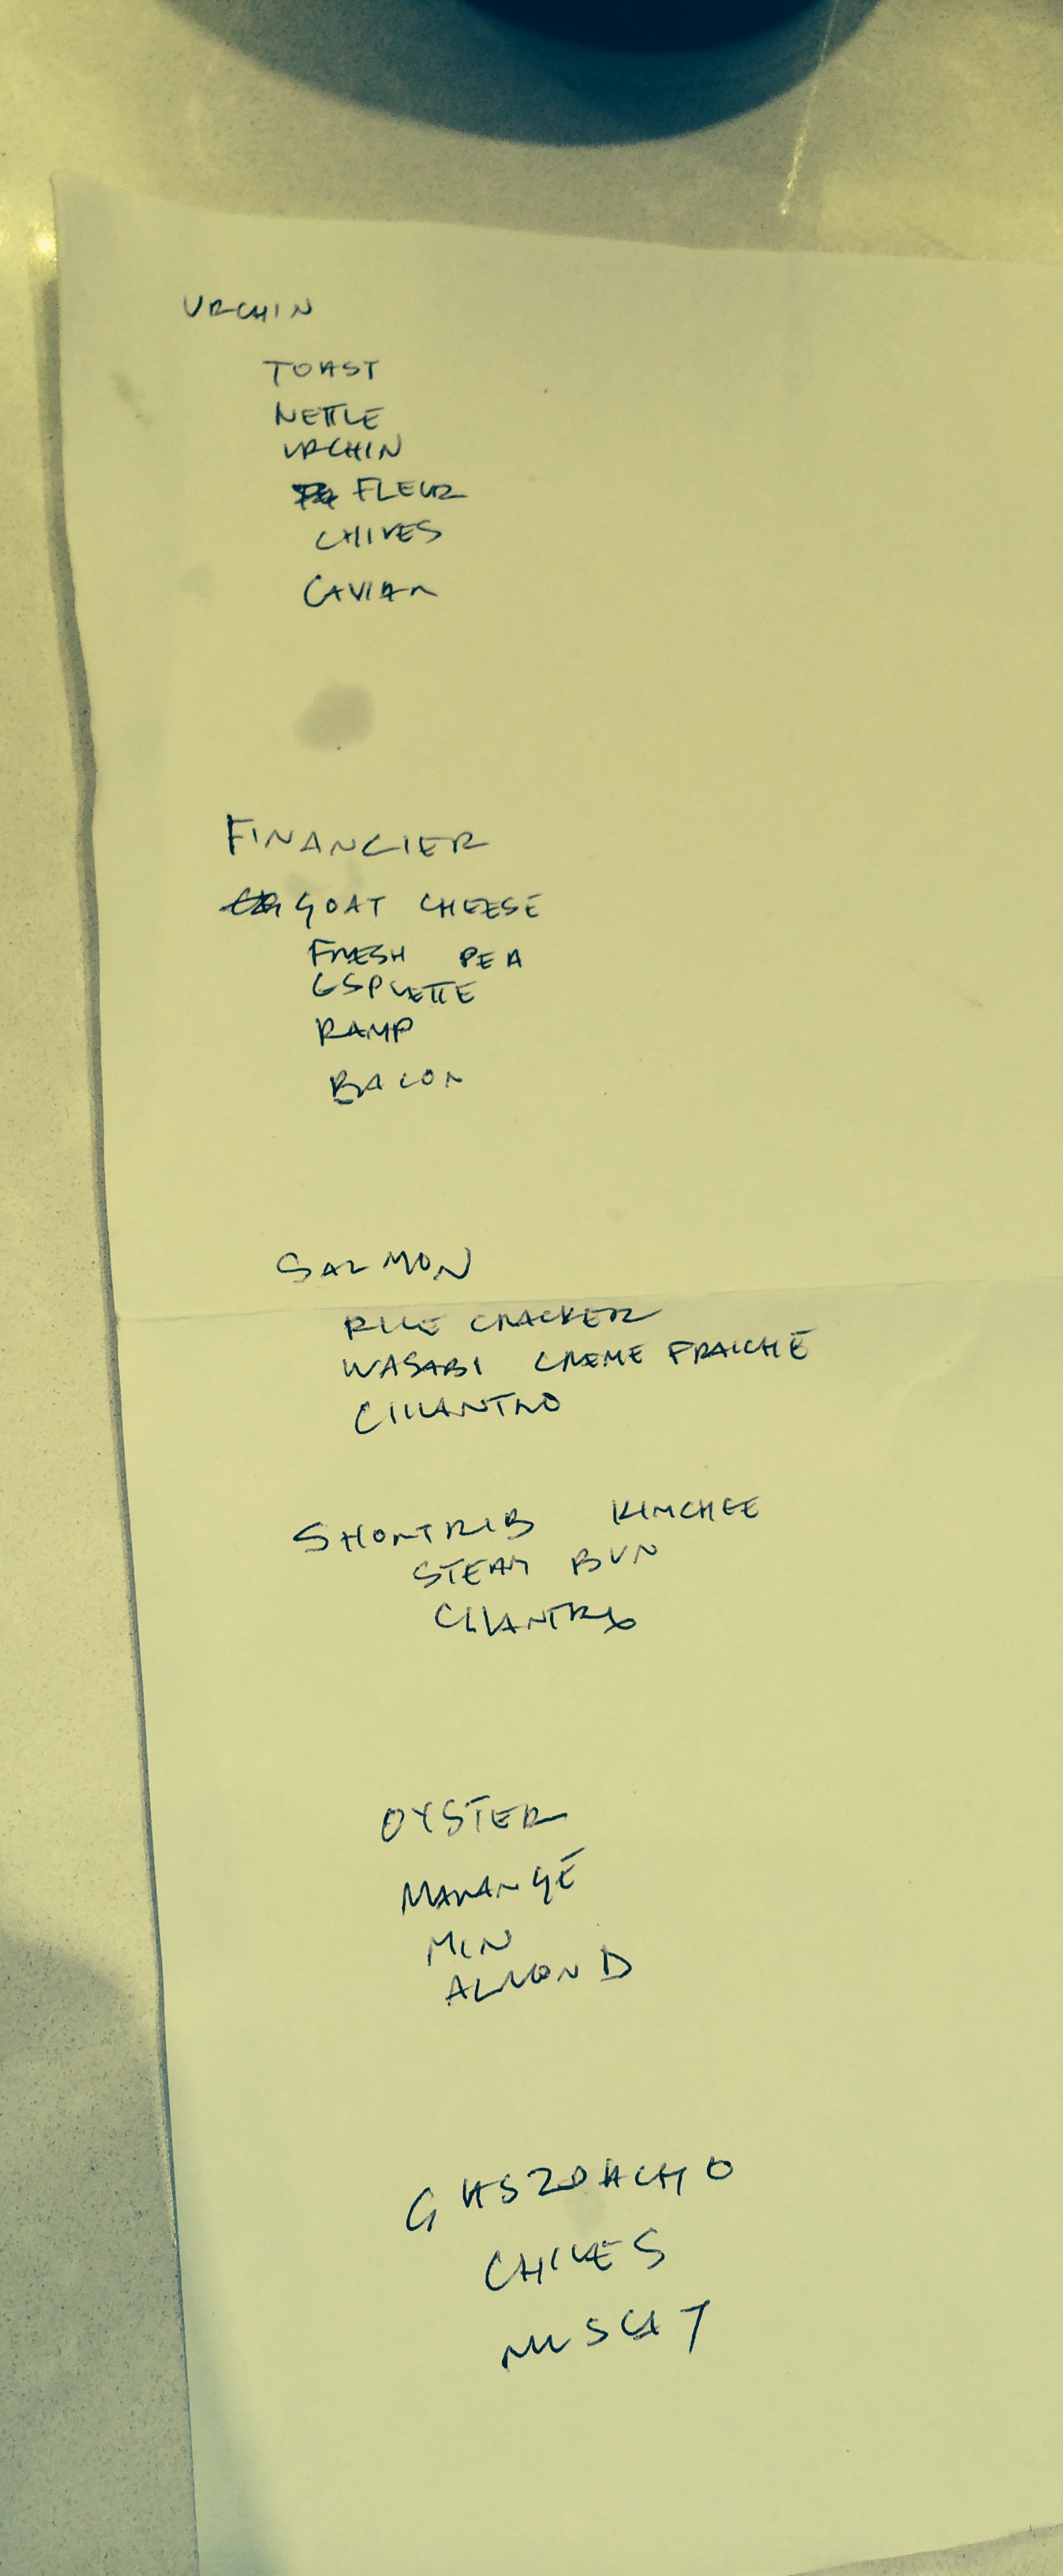 URCHIN
TOAST
NETTLE
URCHIN
FLEUR
CHIVES
CAVIAR
FINANCIER
GOAT CHEESE
FRESH PEA
ESPLETTE
RAMP
BACON
SALMON
RICE CRACKER
WASABI CREME FRAICHE
CILLANTRO
SHORTRIB KIMCHEE
STEAM BUN
CILANTRO
OYSTER
MIN
ALMOND
GASZPACHO
CHIVES
MUSCAT